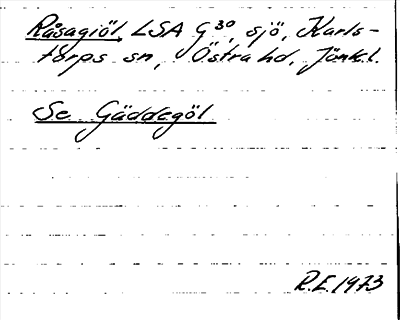 Råsagiöl, LSA G30, sjö, Karls-
torps sn, Östra hd, Jönk.l.
Se Gäddegöl
R.E. 1973